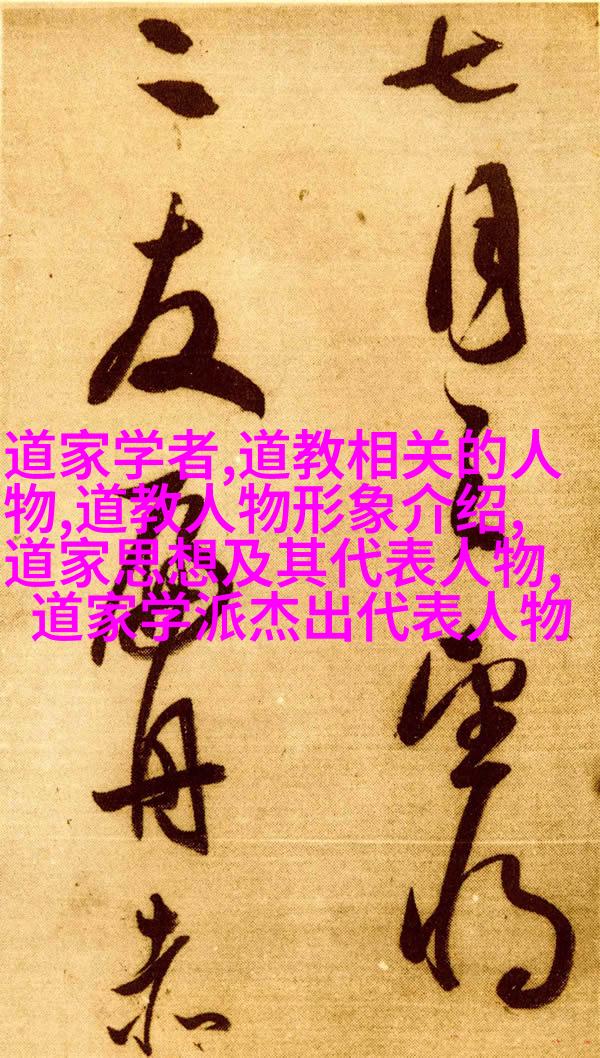 七月之望将
二友舟赤
道家学者,道教相关的人
物,道教人物形象介绍,
道家思想及其代表人物,
道家学派杰出代表人物